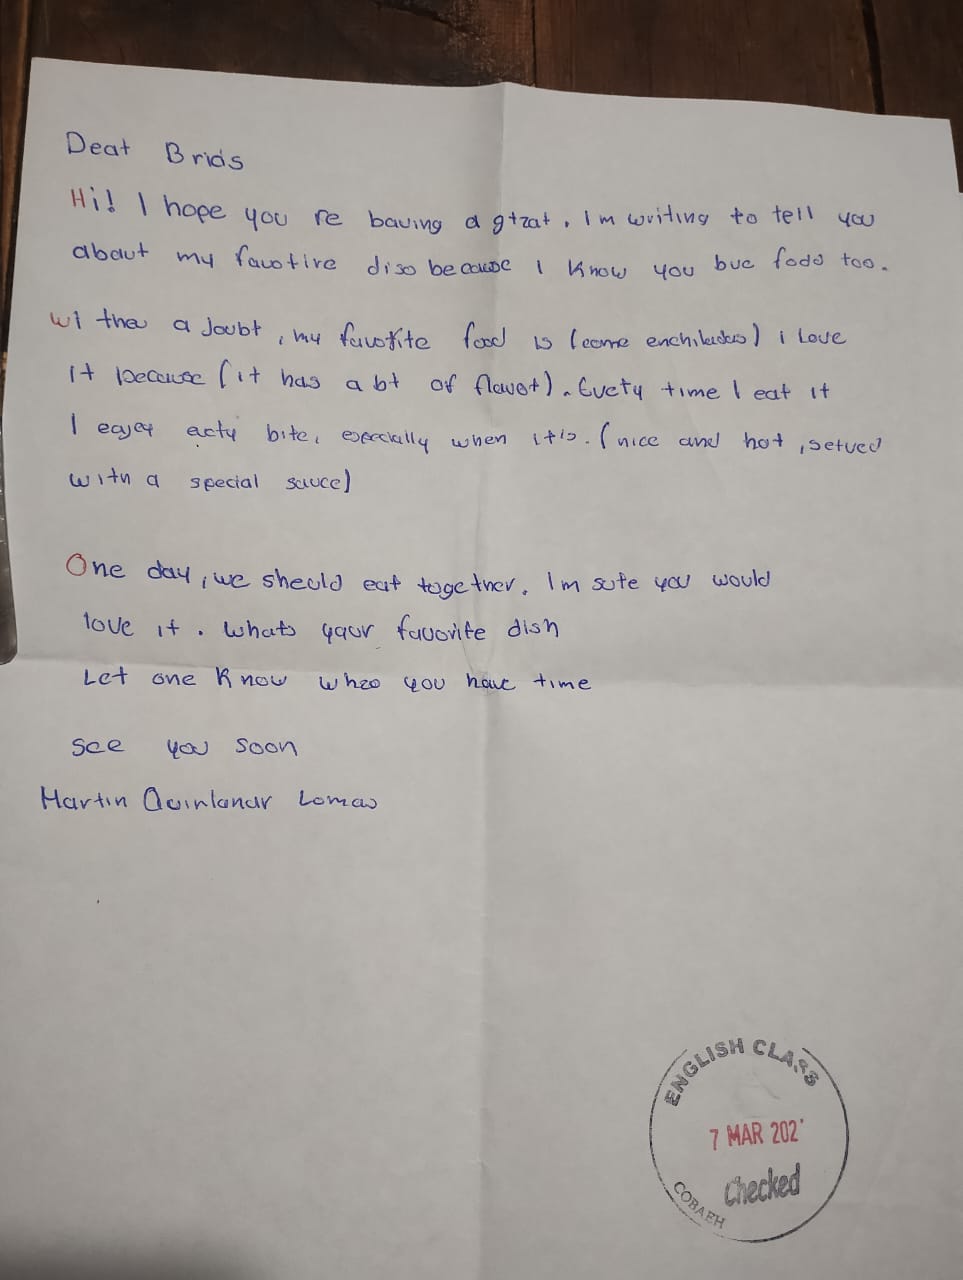 Deat Brids
Hi! I hope you re baving a gtzat, Im writing to tell you
about my favotire diso because I know you bue fodd too.
wi thea a Joubt, my favorite food is (come enchiladas) i Love
it because (it has a bt of flavot). Evety time I eat it
I ejyey acty bite, esercially when itis. (nice and hot, setved
with a special sauce)
One day, we should eat together. Im sute you would
love it. whats yaur favorite dish
Let one know wheo you have time
see you soon
Martin Quinlanar Lomas
ENGLISH CLASS
7 MAR 202
Checked
COBAEH